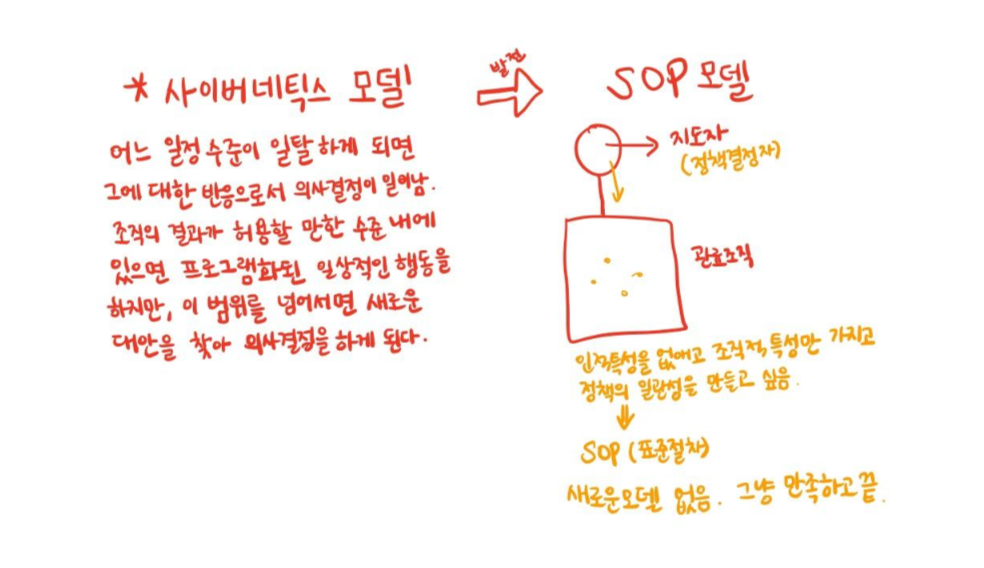 * 사이버네틱스 모델
어느 일정 수준이 일탈 하게 되면
그에 대한 반응으로서 의사결정이 일어남.
조직의 결과가 허용할 만한 수준 내에
있으면 프로그램화된 일상적인 행동을
하지만, 이 범위를 넘어서면 새로운
대안을 찾아 의사결정을 하게 된다.
발전
SOP 모델
지도자
(정책결정자)
관료조직
인적특성을 없애고 조직적 특성만 가지고
정책의 일관성을 만들고 싶음.
SOP (표준절차)
새로운모델 없음. 그냥 만족하고 끝.